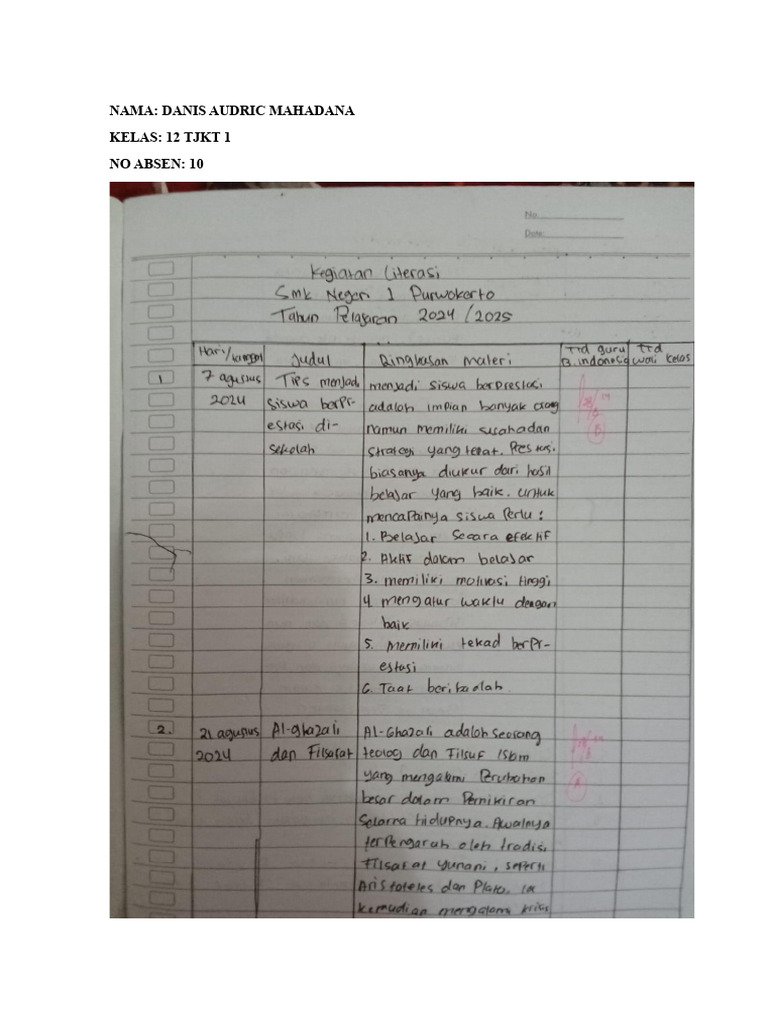 NAMA: DANIS AUDRIC MAHADANA
KELAS: 12 TJKT 1
NO ABSEN: 10
No.
Date:
Kegiatan Literasi
Smk Negeri 1 Purwokerto
Tahun Pelajaran 2024/2025
Hari/tanggal Judul Ringkasan Materi Ttd guru B. indonesia Ttd wali kelas
1. 7 agustus Tips menjadi menjadi siswa berprestasi
2024 siswa berpr- adalah impian banyak orang
estasi di- namun memiliki susahadan
sekolah strategi yang tepat. Prestasi
biasanya diukur dari hasil
belajar yang baik. untuk
mencapainya siswa perlu :
1. Belajar secara efektif
2. Aktif dalam belajar
3. memiliki motivasi tinggi
4. mengatur waktu dengan
baik
5. Memiliki tekad berpr-
estasi
6. Taat beribadah.
2. 21 agustus Al-ghazali Al-Ghazali adalah seorang
2024 dan Filsafat teolog dan Filsuf Islam
yang mengalami Perubahan
besar dalam Pemikiran
Selama hidupnya. Awalnya
terpengaruh oleh tradisi
Filsafat Yunani, seperti
Aristoteles dan Plato, ia
kemudian mengalami krisis